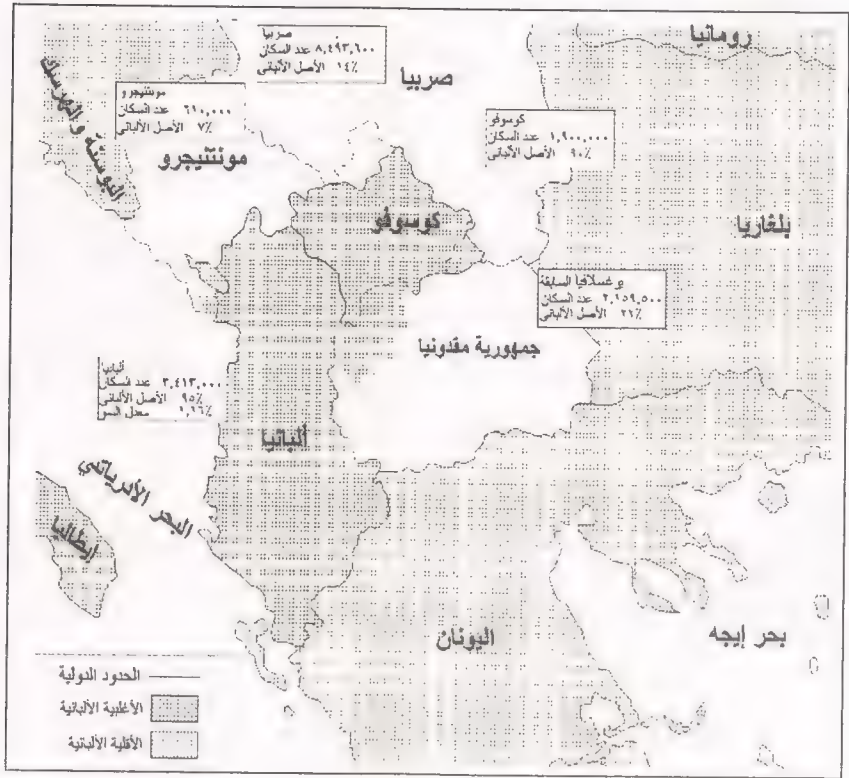 رومانيا
صربيا
٨,٤٩٣,٦٠٠ عدد السكان
١٤٪ الأصل الألباني
صربيا
البوسنة والهرسك
مونتنيجرو
٦١٠,٠٠٠ عدد السكان
٧٪ الأصل الألباني
مونتنيجرو
كوسوفو
١,٩٠٠,٠٠٠ عدد السكان
٩٠٪ الأصل الألباني
كوسوفو
بلغاريا
يوغسلافيا السابقة
٢,١٥٩,٥٠٠ عدد السكان
٢١٪ الأصل الألباني
جمهورية مقدونيا
ألبانيا
٣,٤١٣,٠٠٠ عدد السكان
٩٥٪ الأصل الألباني
١,١٦٪ معدل
ألبانيا
البحر الأدرياتي
إيطاليا
اليونان
بحر إيجه
الحدود الدولية
الأغلبية الألبانية
الأقلية الألبانية